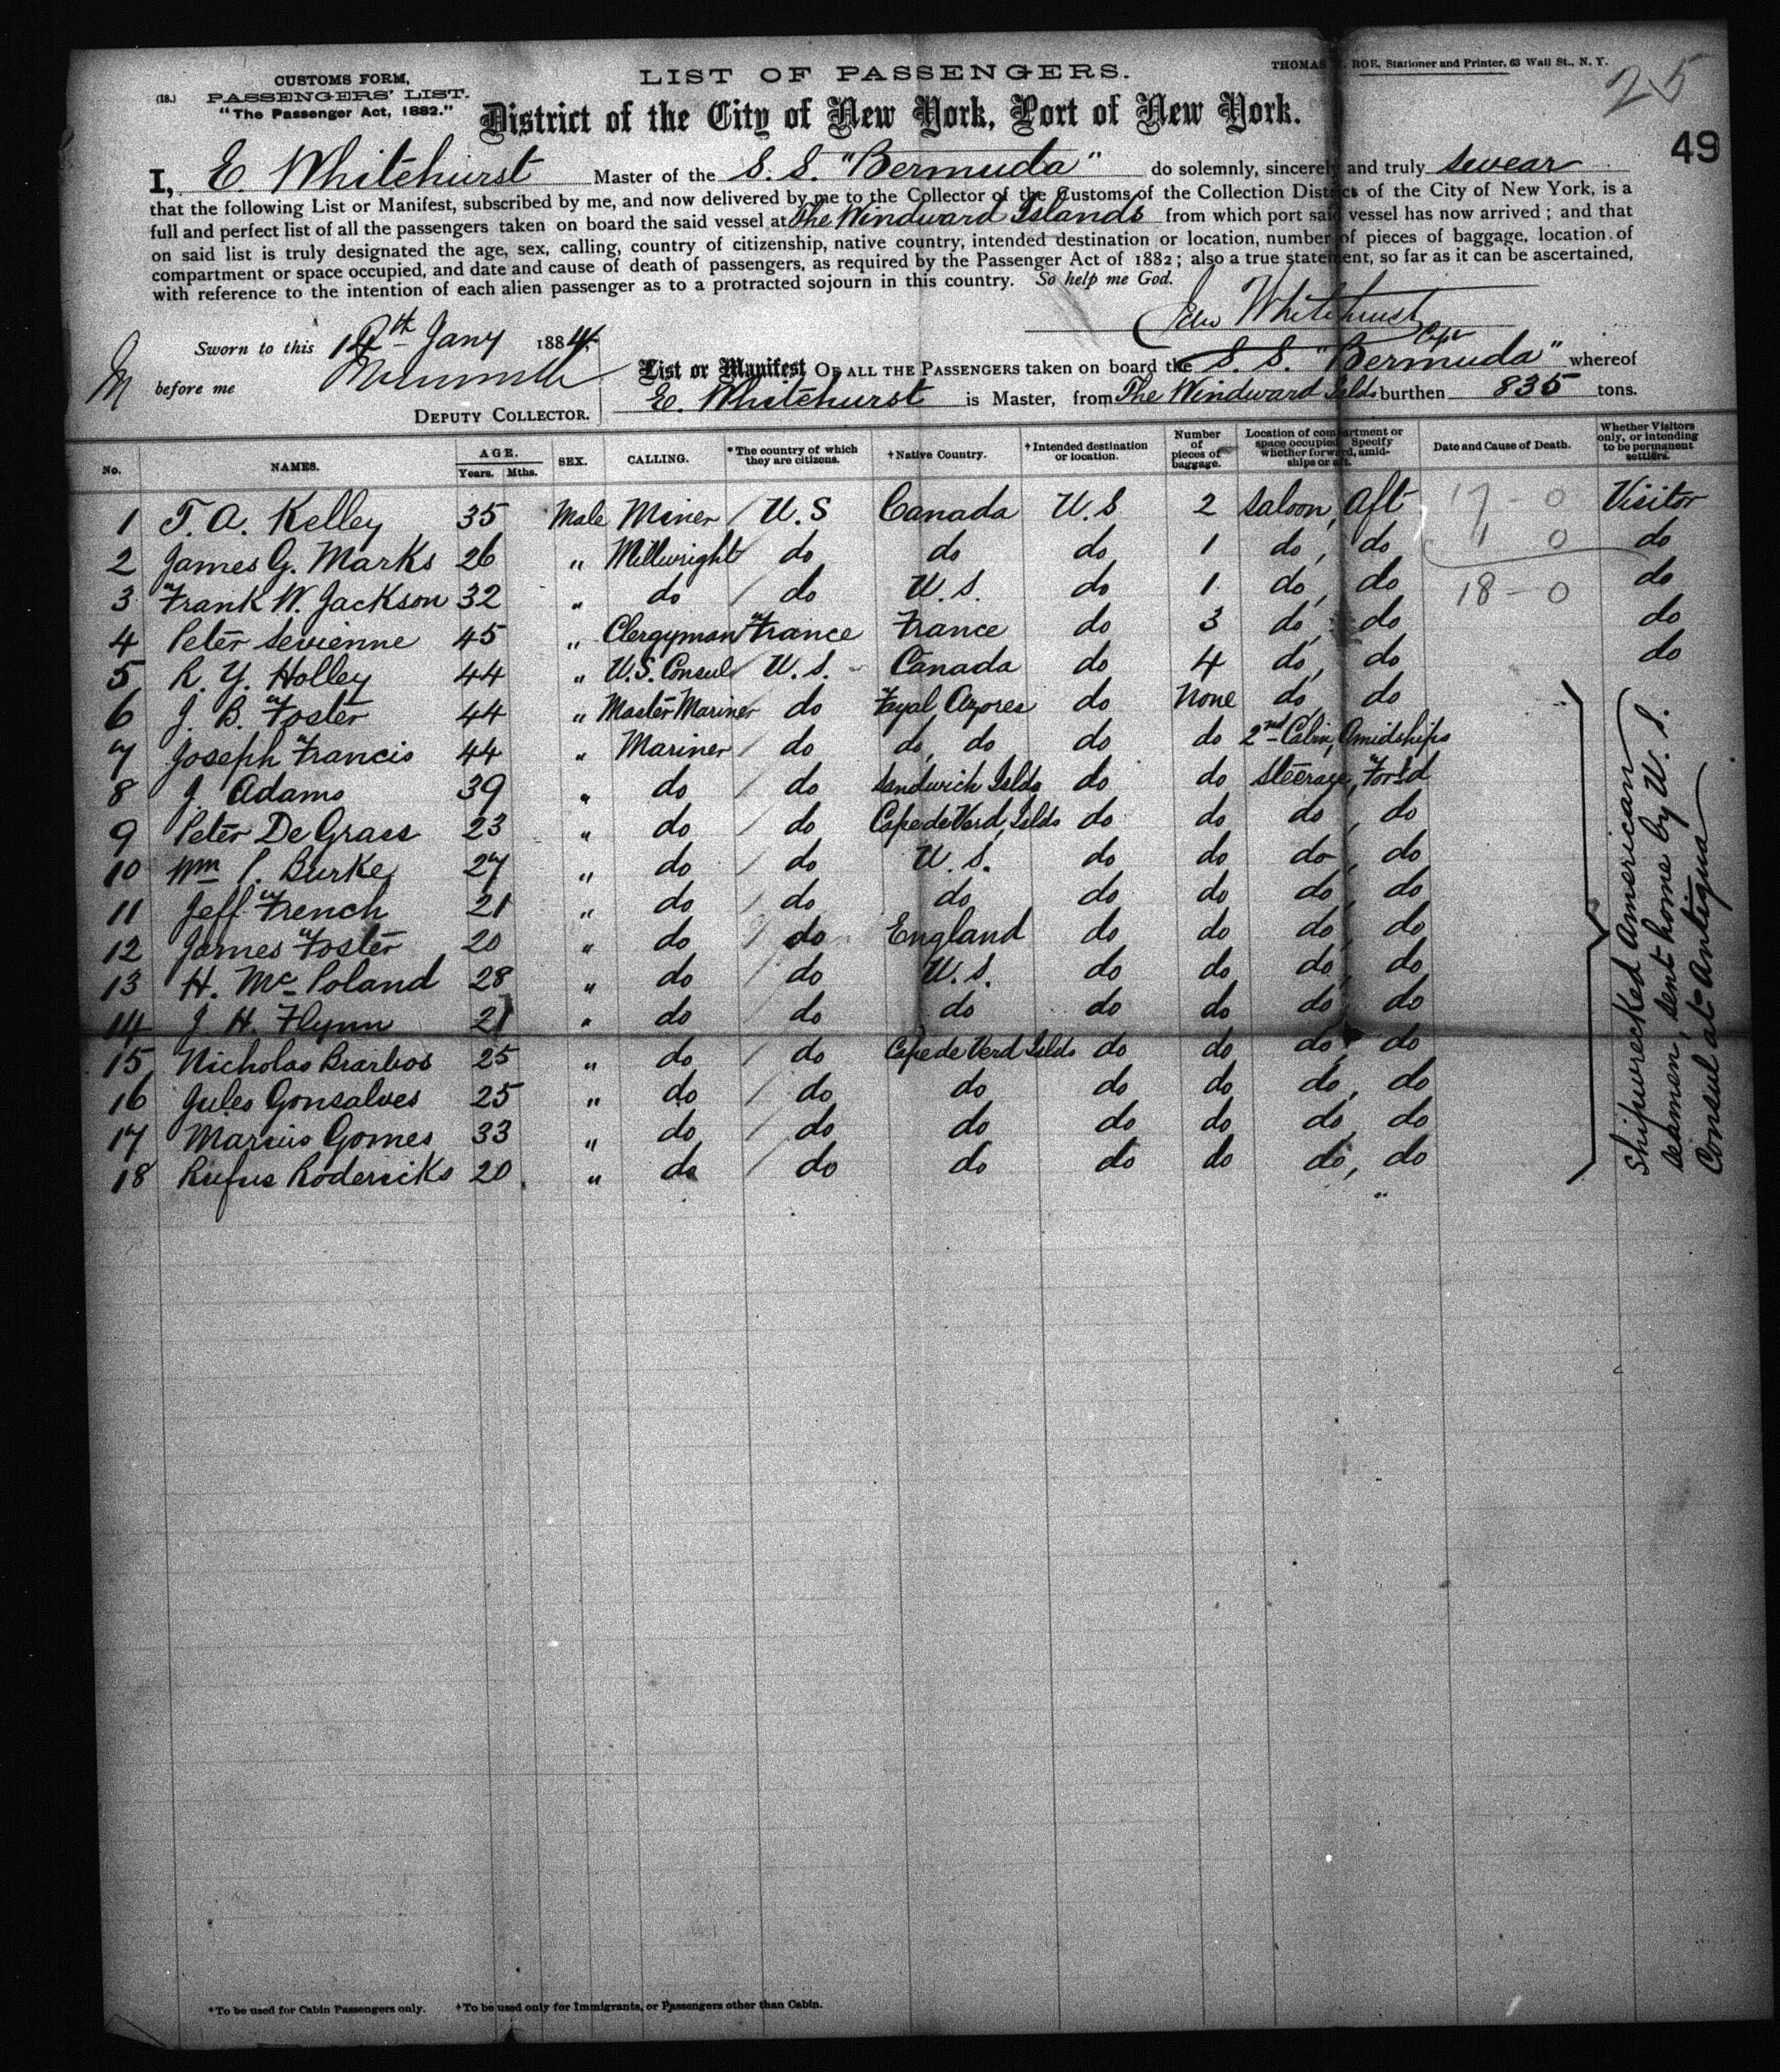 CUSTOMS FORM,
(18.) PASSENGERS' LIST.
"The Passenger Act, 1882."
LIST OF PASSENGERS.
THOMAS ROE, Stationer and Printer, 63 Wall St., N. Y.
25
District of the City of New York, Port of New York.
49
I, E. Whitehurst Master of the S. S. "Bermuda" do solemnly, sincerely and truly swear
that the following List or Manifest, subscribed by me, and now delivered by me to the Collector of the Customs of the Collection District of the City of New York, is a
full and perfect list of all the passengers taken on board the said vessel at The Windward Islands from which port said vessel has now arrived; and that
on said list is truly designated the age, sex, calling, country of citizenship, native country, intended destination or location, number of pieces of baggage, location of
compartment or space occupied, and date and cause of death of passengers, as required by the Passenger Act of 1882; also a true statement, so far as it can be ascertained,
with reference to the intention of each alien passenger as to a protracted sojourn in this country. So help me God.
Edw Whitehurst
Sworn to this 12th Jany 1884
before me
DEPUTY COLLECTOR.
List or Manifest OF ALL THE PASSENGERS taken on board the S. S. "Bermuda" whereof
E. Whitehurst is Master, from The Windward Islds burthen 835 tons.
No. NAMES. AGE. Years. Mths. SEX. CALLING. *The country of which they are citizens. †Native Country. †Intended destination or location. Number of pieces of baggage. Location of compartment or space occupied. Specify whether forward, amidships or aft. Date and Cause of Death. Whether Visitors only, or intending to be permanent settlers.
1 T. A. Kelley 35 Male Miner / U.S Canada U.S 2 Saloon, Aft 17 - 0 Visitor
2 James G. Marks 26 " Millwright do do do 1 do, do 1 0 do
3 Frank W. Jackson 32 " do / do U.S. do 1 do, do 18 - 0 do
4 Peter Sevienne 45 " Clergyman France France do 3 do, do do
5 R. Y. Holley 44 " U.S. Consul / U.S. - Canada do 4 do, do do
6 J. B. Foster 44 " Master Mariner do Fayal Azores do None do, do
7 Joseph Francis 44 " Mariner / do do, do do do 2nd Cabin, Amidships
8 J. Adams 39 " do / do Sandwich Islds do do Steerage, For'd
9 Peter De Grass 23 " do / do Cape de Verd Islds do do do, do
10 Wm P. Burke 27 " do / do U.S. do do do, do
11 Jeff French 21 " do / do do do do do, do
12 James Foster 20 " do / do England do do do, do
13 H. Mc Poland 28 " do / do U.S. do do do, do
14 J H. Flynn 21 " do / do do do do do, do
15 Nicholas Brarbos 25 " do / do Cape de Verd Islds do do do, do
16 Jules Gonsalves 25 " do / do do do do do, do
17 Marcus Gomes 33 " do / do do do do do, do
18 Rufus Rodericks 20 " do / do do do do do, do
Shipwrecked American
seamen, sent home by U. S.
Consul at Antigua
*To be used for Cabin Passengers only. †To be used only for Immigrants, or Passengers other than Cabin.